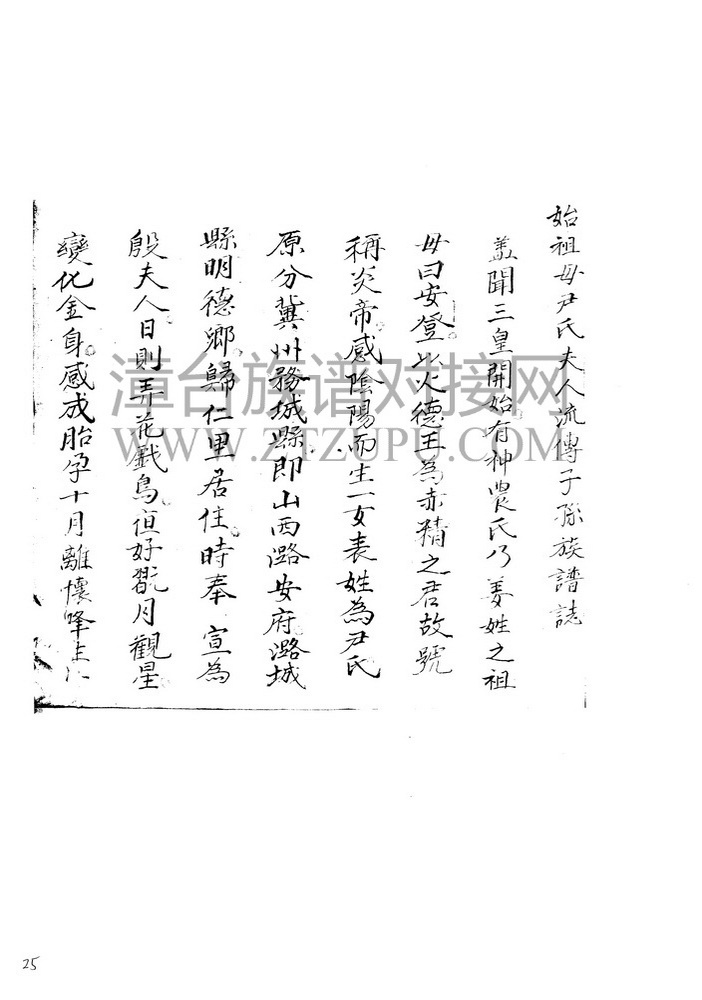 始祖母尹氏夫人流傳子孫族譜誌
蓋聞三皇開始有神農氏乃姜姓之祖
母曰安登以火德王為赤精之君故號
稱炎帝感陰陽而生一女表姓為尹氏
原分冀州務城縣即山西潞安府潞城
縣明德鄉歸仁里居住時奉 宣為
殷夫人日則弄花戲鳥宵好翫月觀星
變化金身感成胎孕十月離懷降生
漳台族谱对接网
WWW.ZTZUPU.COM
25